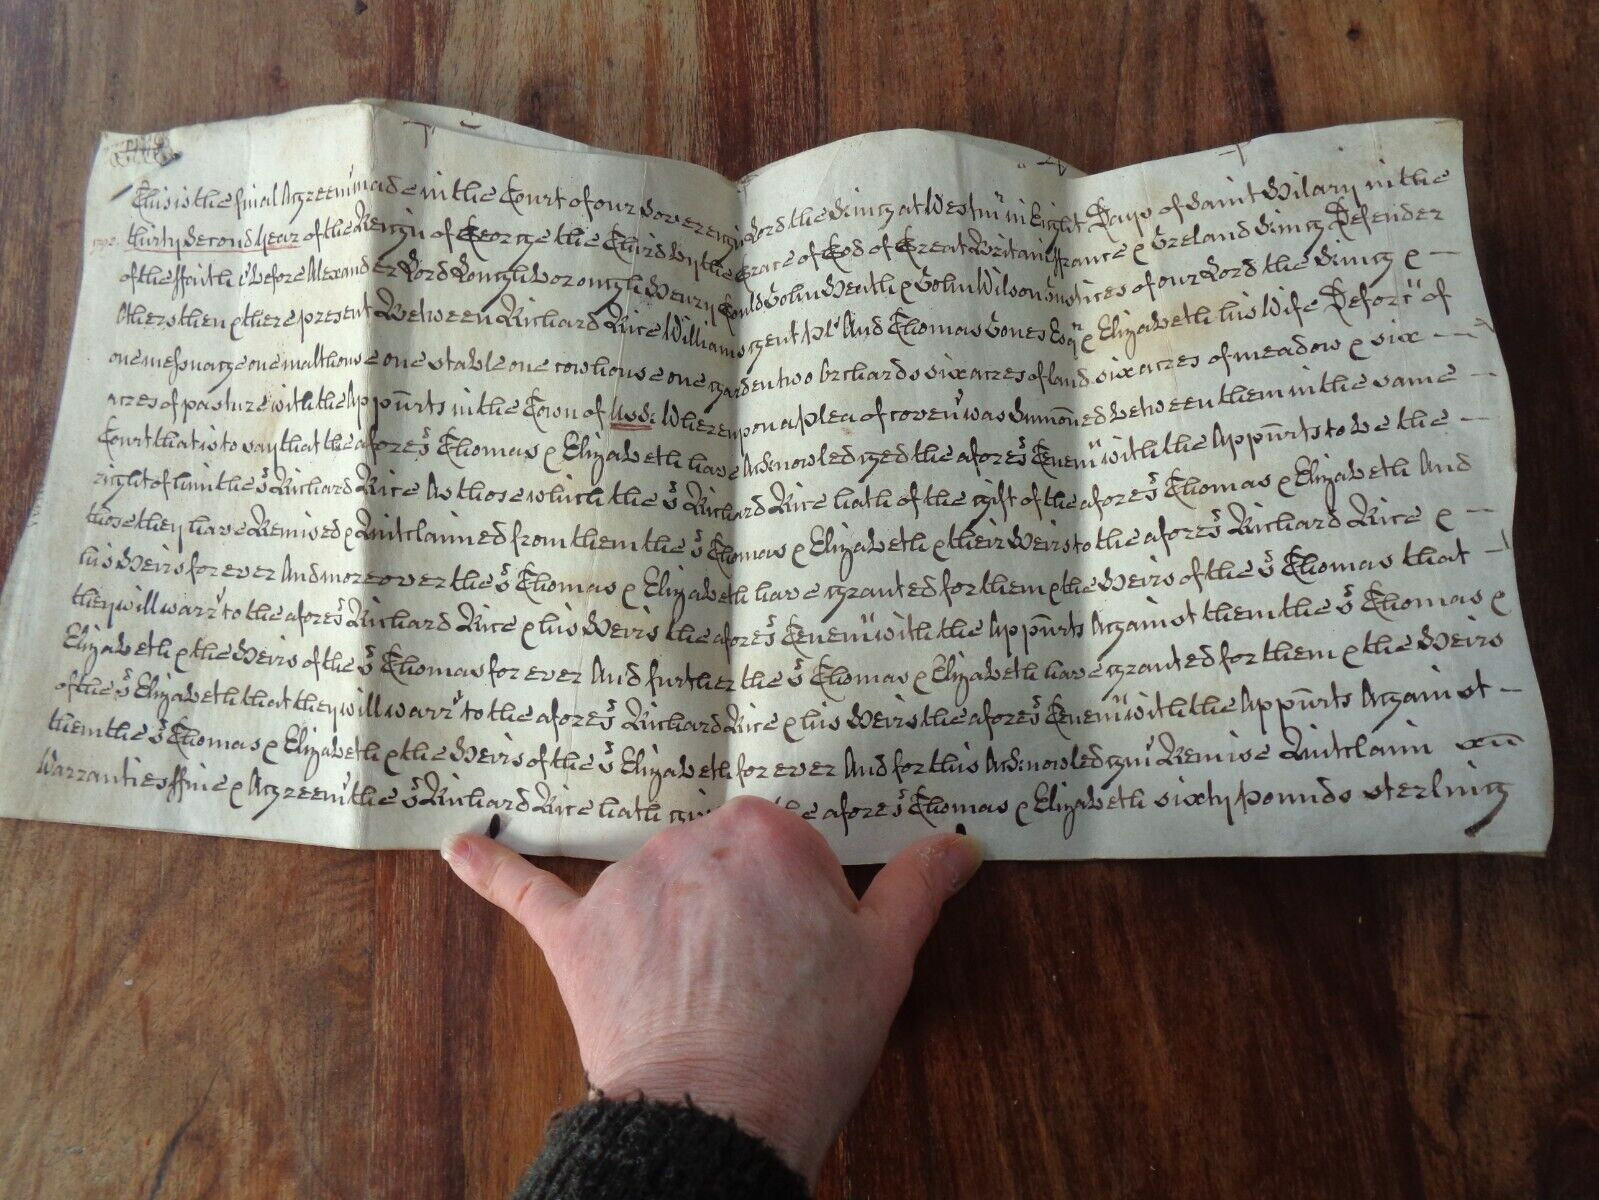 This is the final Agreemt made in the Court of our Sovereign Lord the King at Westmr in Eight Days of Saint Hilary in the
thirty Second Year of the Reign of George the Third by the Grace of God of Great Britain ffrance & Ireland King Defender
of the ffaith &c Before Alexander Lord Loughborough Henry Gould John Heath & John Wilson Justices of our Lord the King & —
Others then & there present Between Richard Rice William Sergent Plt And Thomas Jones Esqr & Elizabeth his Wife Deforcts of
one messuage one malthouse one stable one cowhouse one garden two Orchards six acres of land six acres of meadow & six —
acres of pasture with the Appurts in the Town of Usk: Whereupon a plea of covent was Sumoned between them in the same —
Court that is to say that the afores͛d Thomas & Elizabeth have Acknowledged the aforesd Tenemts with the Appurts to be the —
right of him the sd Richard Rice As those which the sd Richard Rice hath of the gift of the aforesd Thomas & Elizabeth And
those they have Remised & Quitclaimed from them the sd Thomas & Elizabeth & their Heirs to the aforesd Richard Rice & —
his Heirs for ever And moreover the sd Thomas & Elizabeth have granted for them & the Heirs of the sd Thomas that —
they will warrt to the aforesd Richard Rice & his Heirs the aforesd Tenemts with the Appurts Against them the sd Thomas &
Elizabeth & the Heirs of the sd Thomas for ever And further the sd Thomas & Elizabeth have granted for them & the Heirs
of the sd Elizabeth that they will warrt to the aforesd Richard Rice & his Heirs the aforesd Tenemts with the Appurts Against —
them the sd Thomas & Elizabeth & the Heirs of the sd Elizabeth for ever And for this Acknowledgmt Remise Quitclaim
Warranties ffine & Agreemt the sd Richard Rice hath the aforesd Thomas & Elizabeth sixty pounds sterling